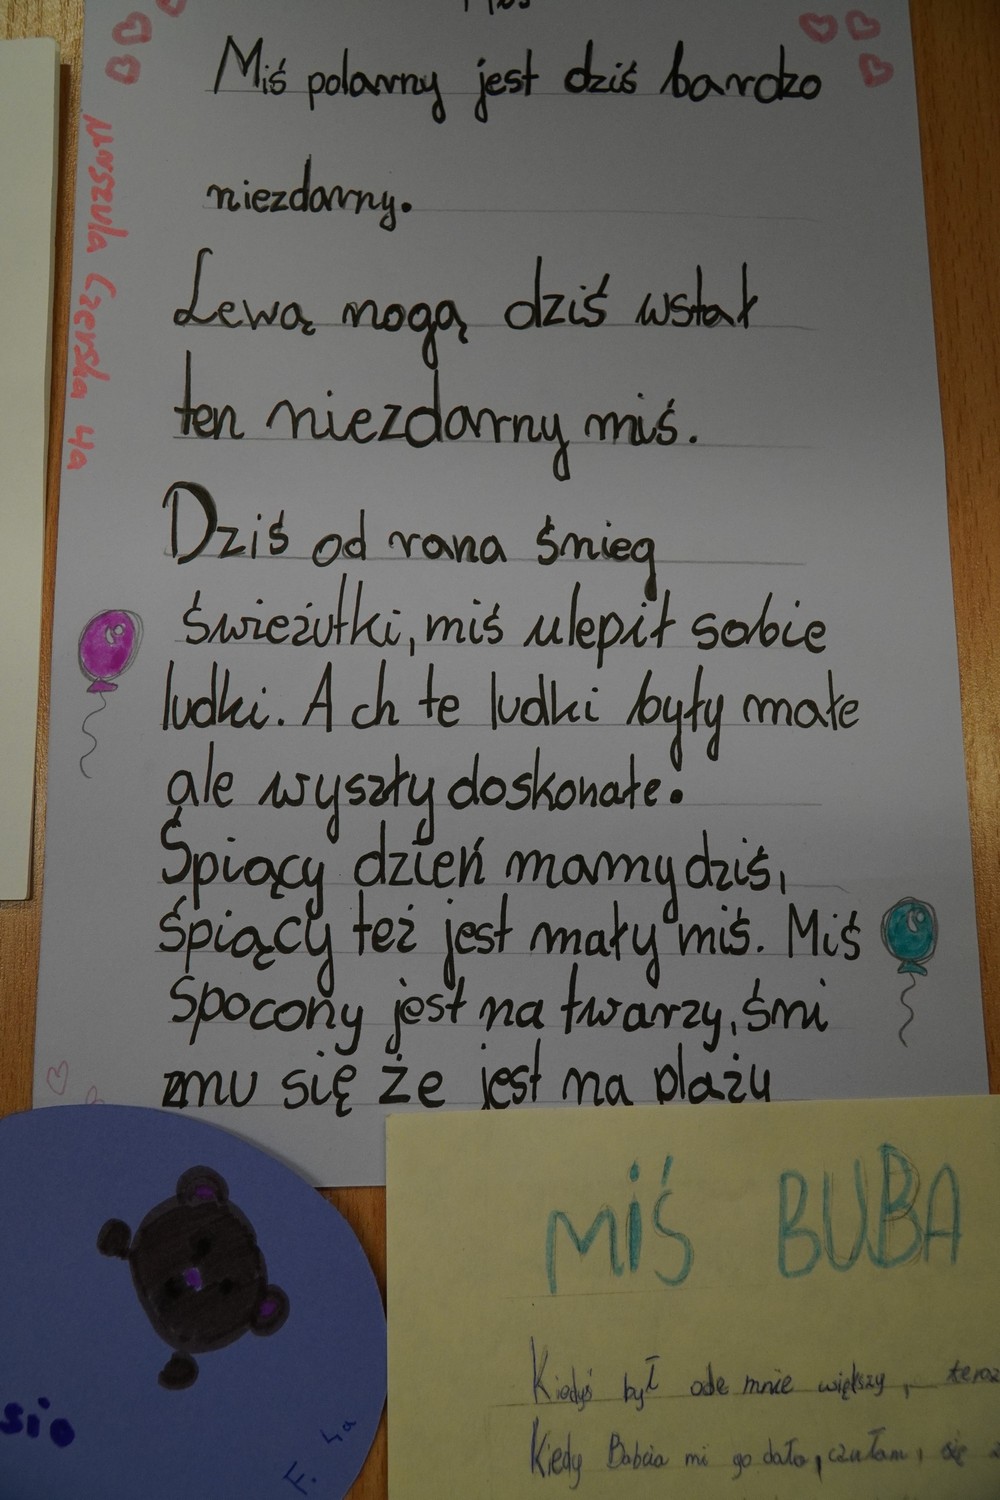 Miś
Miś polarny jest dziś bardzo
niezdarny.
Lewą nogą dziś wstał
ten niezdarny miś.
Dziś od rana śnieg
świeżutki, miś ulepił sobie
ludki. Ach te ludki były małe
ale wyszły doskonałe.
Śpiący dzień mamy dziś,
śpiący też jest mały miś. Miś
spocony jest na twarzy, śni
mu się że jest na plaży
Urszula Czerska 4a
sio
F. 4a
MIŚ BUBA
Kiedyś był ode mnie większy, teraz
Kiedy Babcia mi go dała, czułam, się